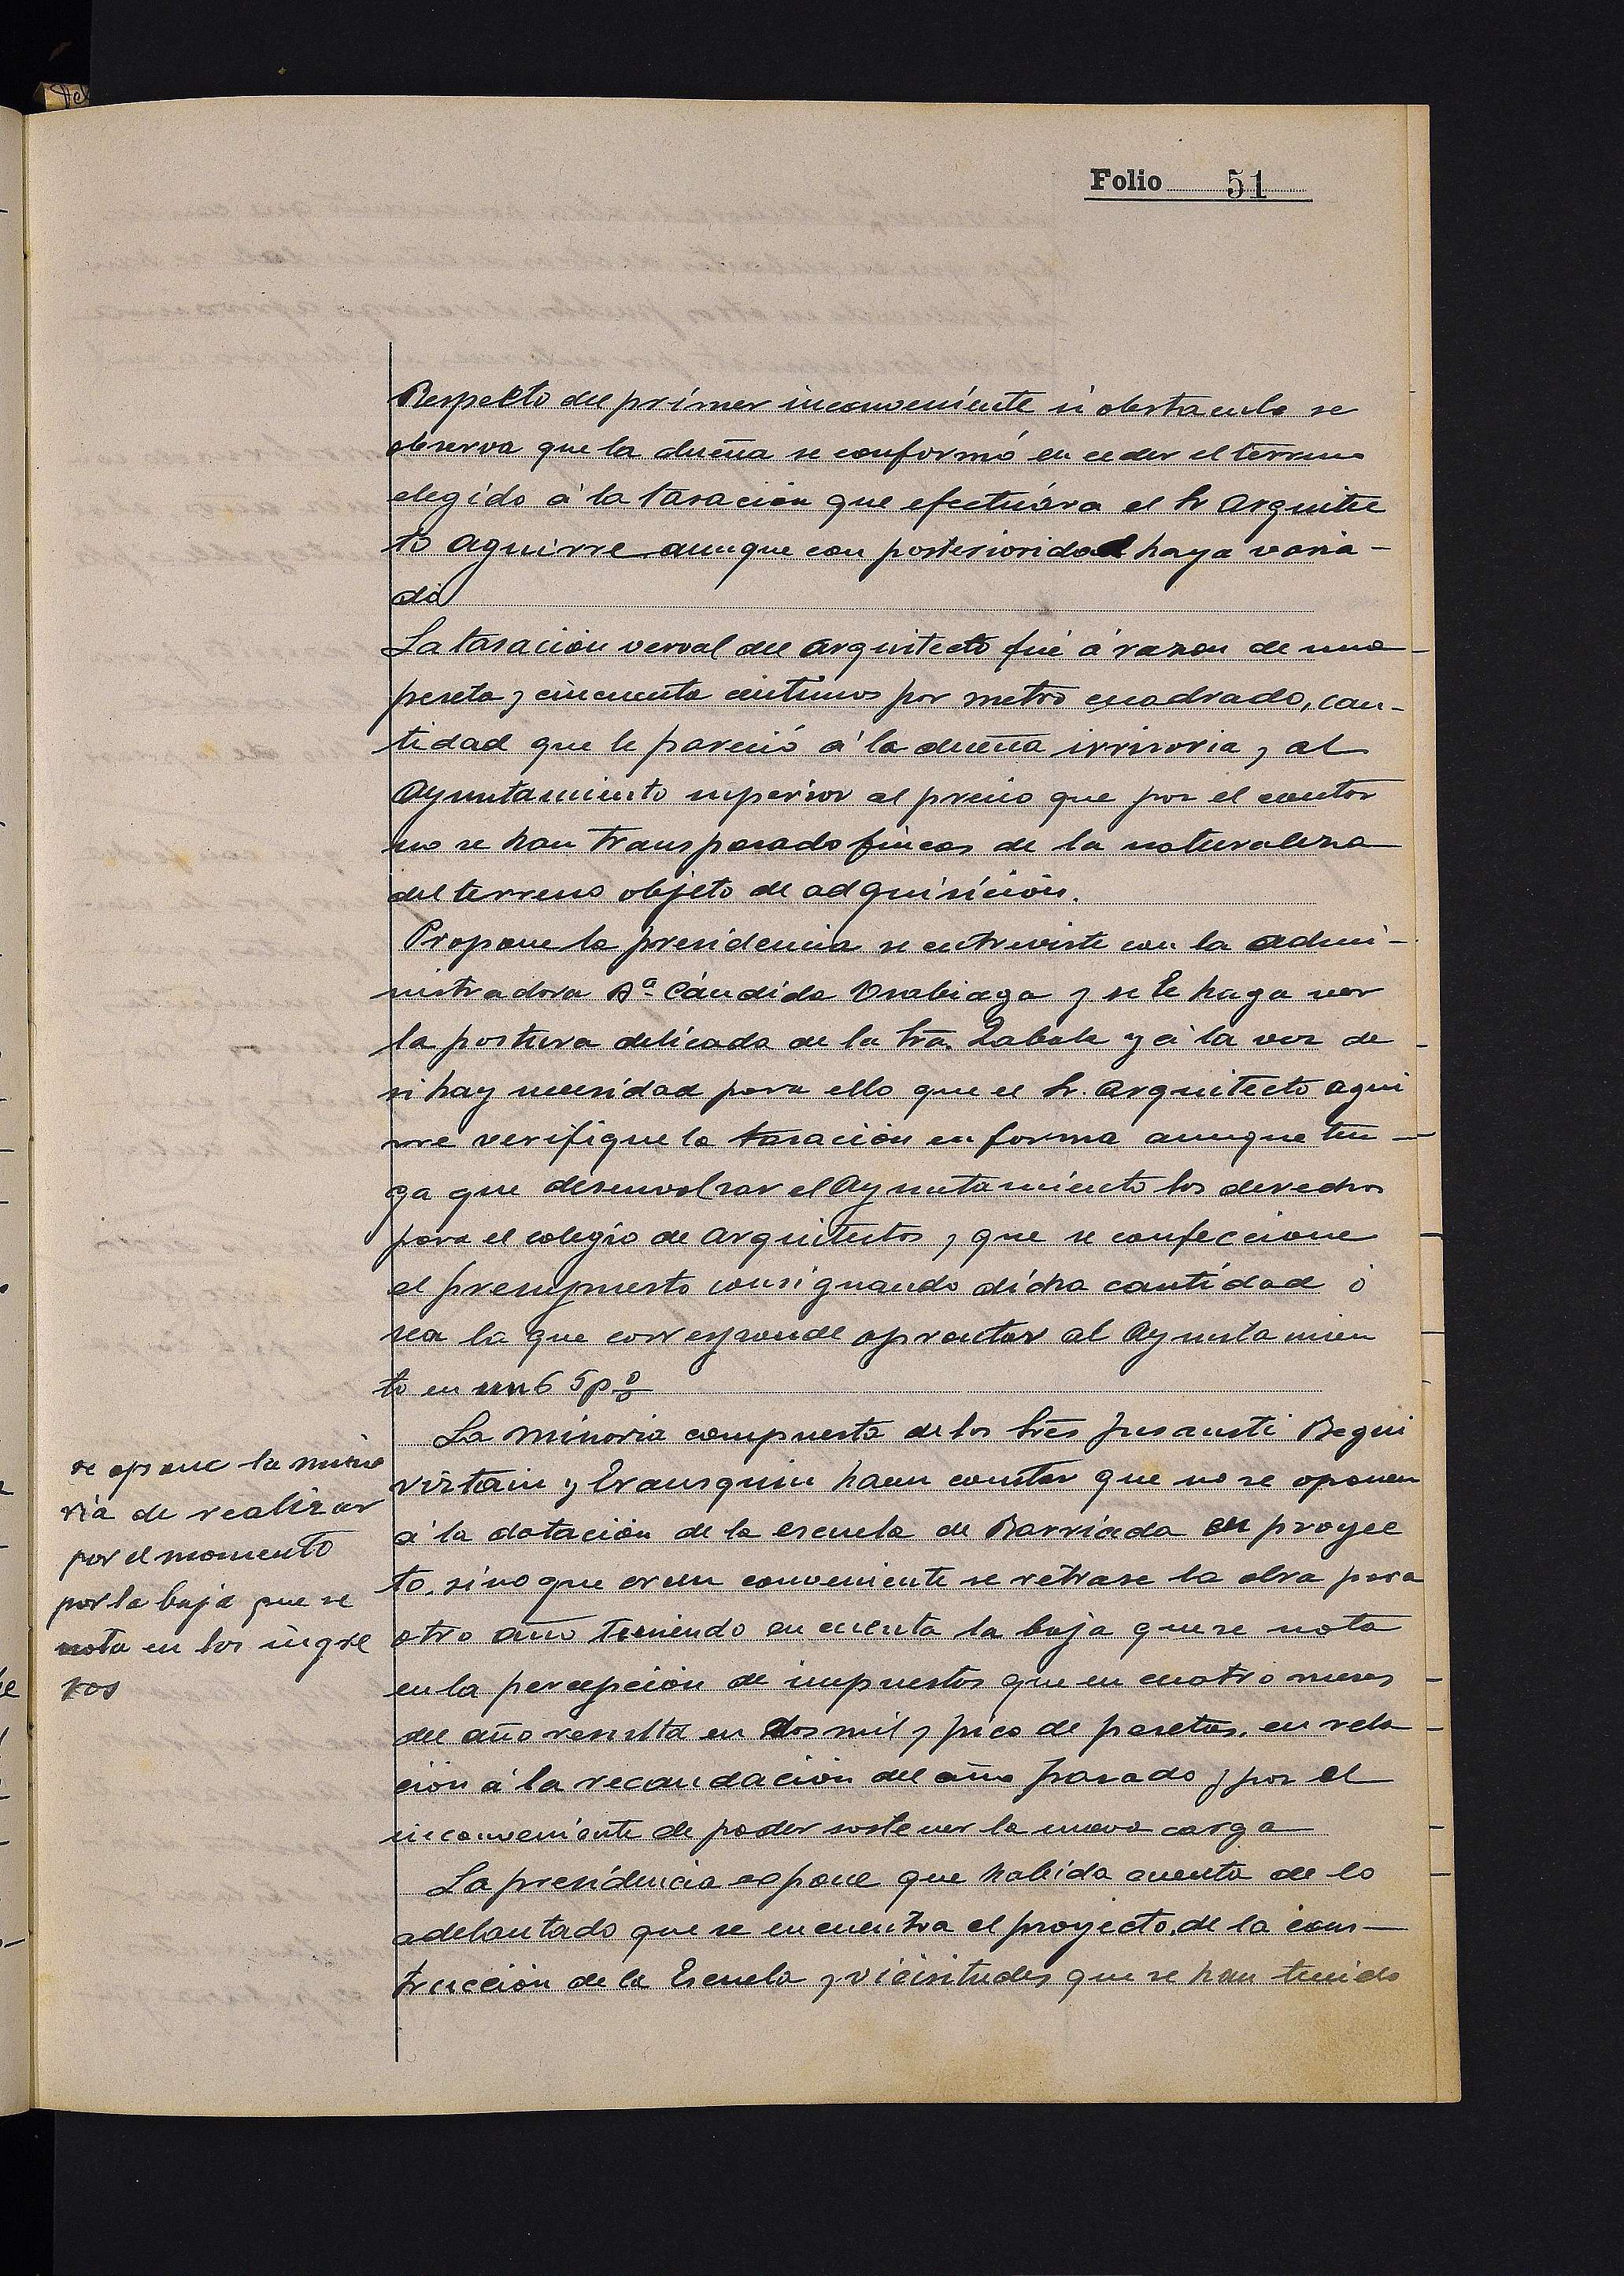 Folio 51
Respecto del primer inconveniente ú obstaculo se
observa que la dueña se conformó en ceder el terreno
elegido á la tasación que efectuára el Sr Arquitec
to Aguirre aunque con posterioridad haya varia-
do
La tasación verval del arquitecto fué á razon de una
peseta y cincuenta centimos por metro cuadrado, can-
tidad que le pareció á la dueña irrisoria, y al
Ayuntamiento superior al precio que por el contor
no se han transpasado fincas de la naturaleza
del terreno objeto de adquisición.
Propone la presidencia se entreviste con la admi-
nistradora Dª Cándida y se le haga ver
la postura delicada de la Sra. Zabala y á la vez de
si hay necesidad para ello que el Sr. Arquitecto Agui
rre verifique la tasación en forma aunque ten-
ga que desenvolsar el Ayuntamiento los derechos
para el colegio de Arquitectos, y que se confeccione
el presupuesto consignando dicha cantidad ó
sea la que corresponde aprontar al Ayuntamien
to en un 65 p%
La minoria compuesta de los Sres Jusausti Begui
viztain y Erausquin hacen constar que no se oponen
á la dotación de la escuela de Barriada en proyec
to, sino que creen conveniente se retrase la obra para
otro año teniendo en cuenta la baja que se nota
en la percepción de impuestos que en cuatro meses
del año resulta en dos mil y pico de pesetas, en rela
ción á la recaudación del año pasado y por el
inconveniente de poder sostener la nueva carga
La presidencia expone que habida cuenta de lo
adelantado que se encuentra el proyecto de la cons-
trucción de la Escuela y vicisitudes que se han tenido
se opone la mino
ria de realizar
por el momento
por la baja que se
nota en los ingre
sos